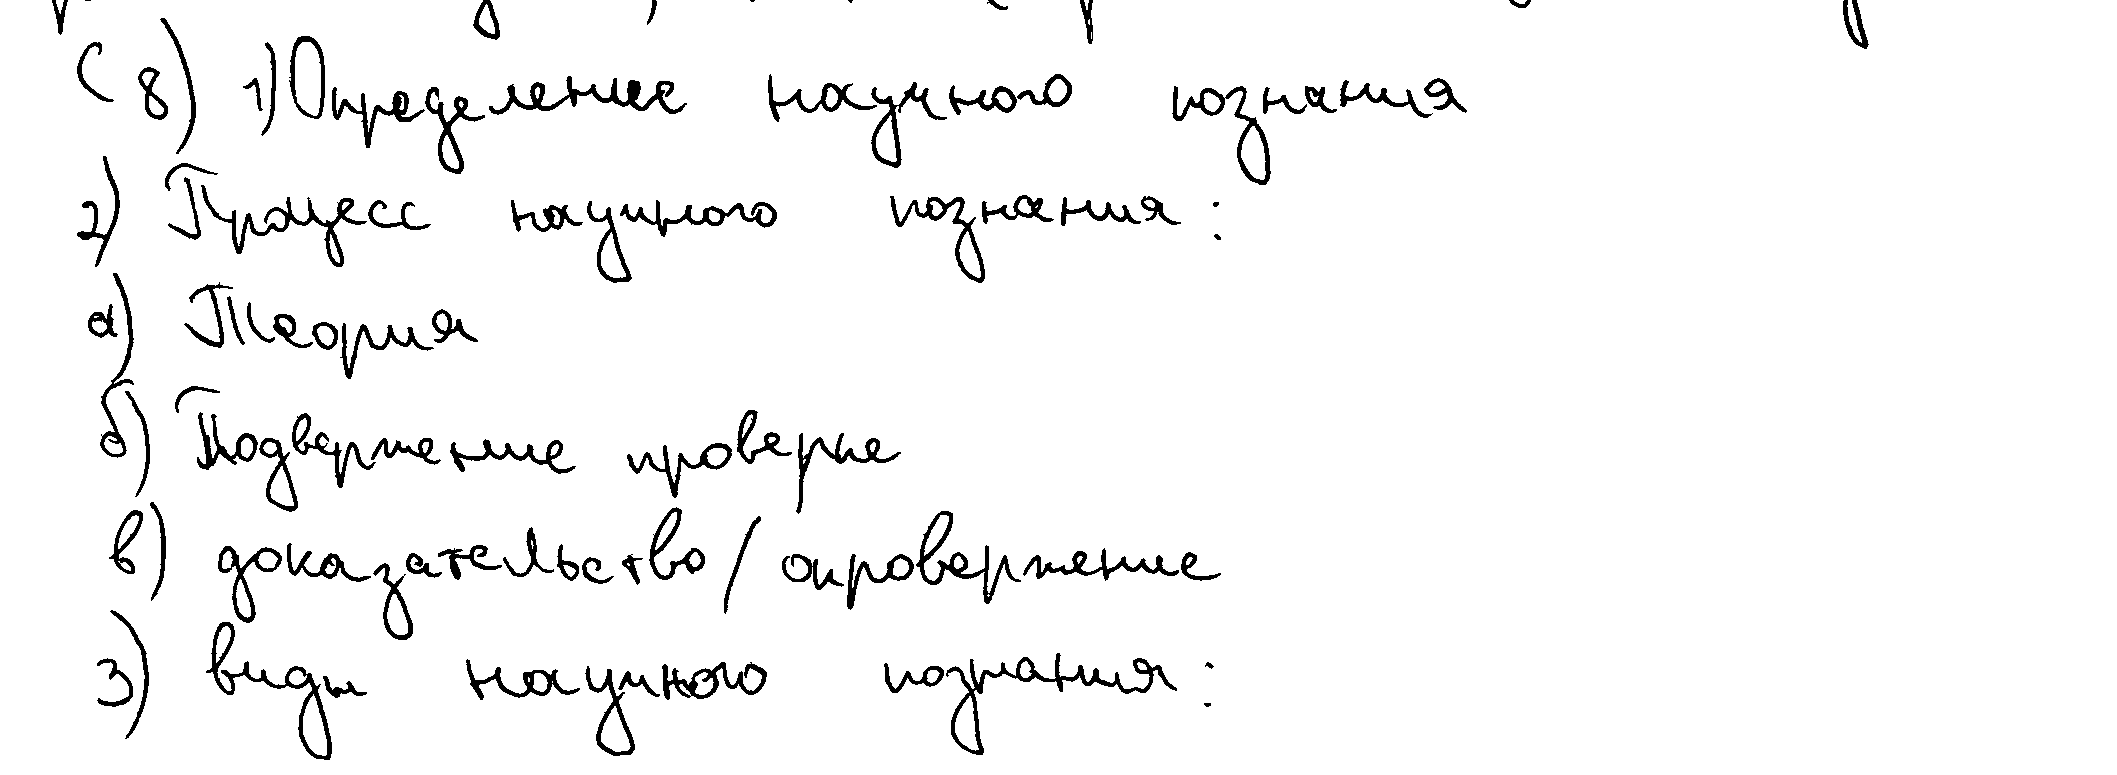 (8) 1) Определение научного познания
2) Процесс научного познания:
а) Теория
б) Подвержение проверке
в) доказательство/опровержение
3) виды научного познания: